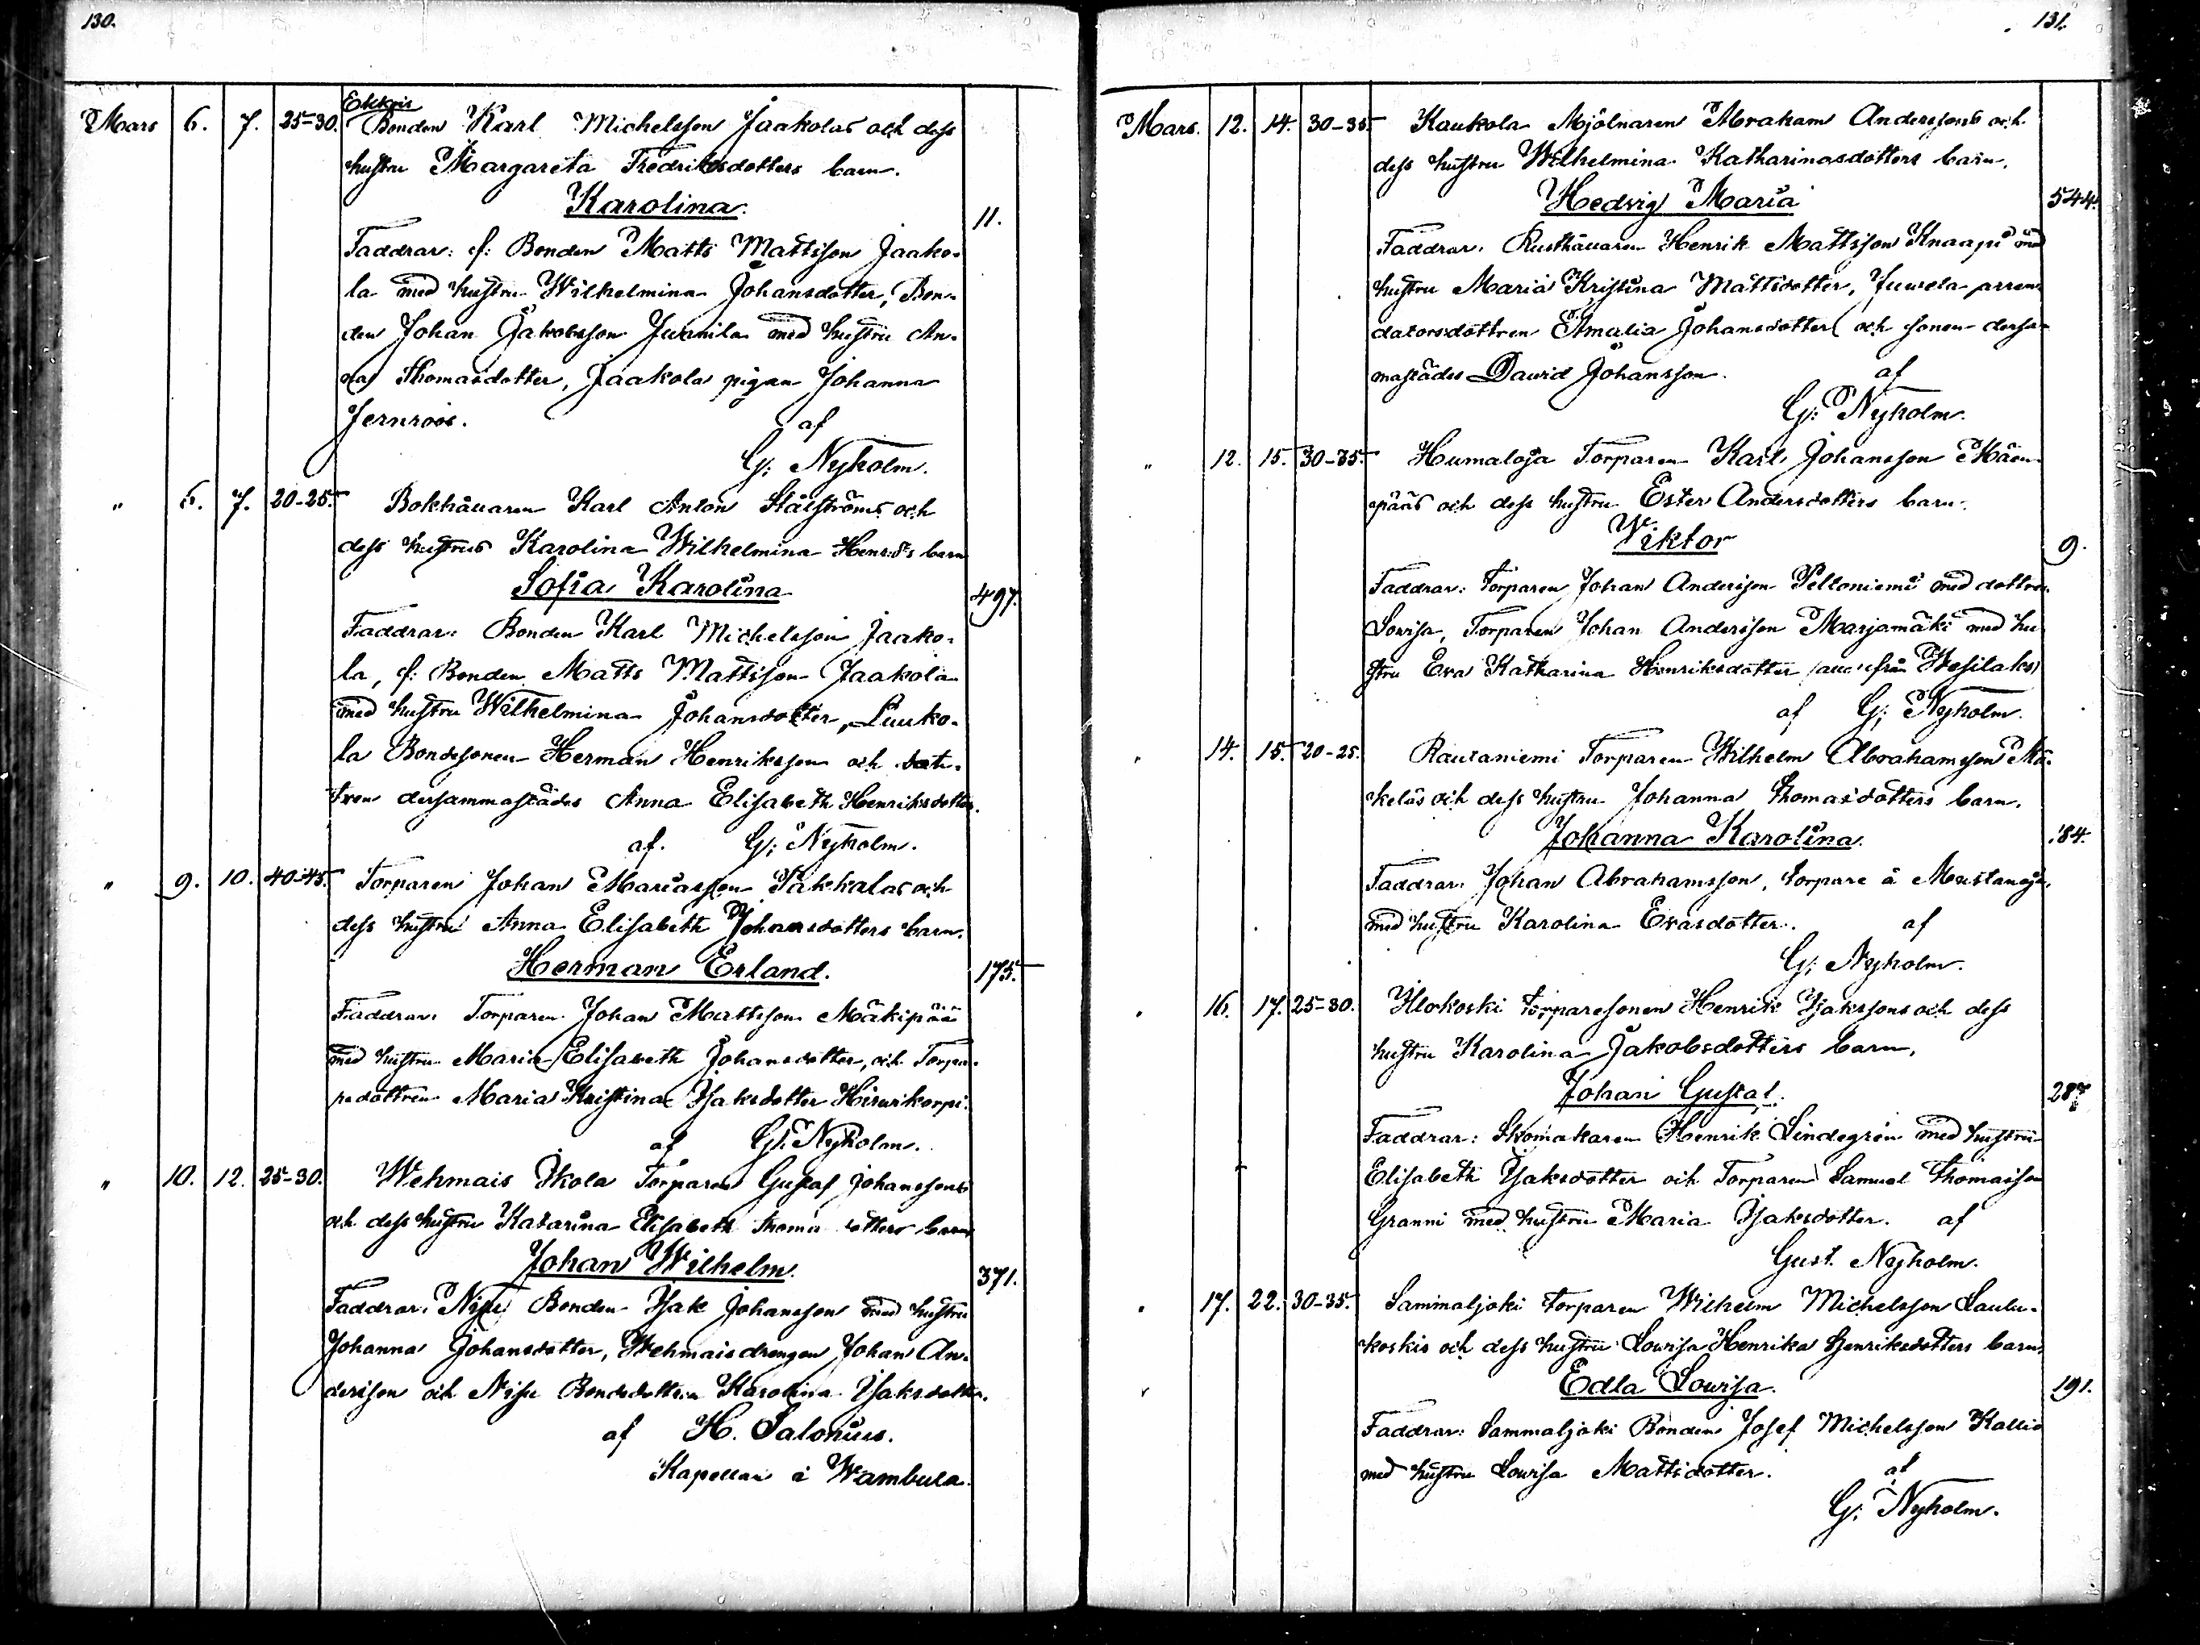 130.
Ekkois
Mars 6. 7. 25-30. Bonden Karl Michelsson Jaakolas och dess
hustru Margareta Fredriksdotters barn.
Karolina. 11.
Faddrar: f: Bonden Matts Mattsson Jaako-
la med hustru Wilhelmina Johansdotter, Bon-
den Johan Jakobsson Juonila med hustru An-
na Thomasdotter, Jaakola pigan Johanna
Jernroos. af
G: Nyholm.
" 6. 7. 20-25. Bokhållaren Karl Anton Stålströms och
dess hustrus Karolina Wilhelmina Henr:ds barn
Sofia Karolina 497.
Faddrar: Bonden Karl Michelsson Jaako-
la, f: Bonden Matts Mattsson Jaakola
med hustru Wilhelmina Johansdotter, Luuko-
la Bondesonen Herman Henriksson och dot-
tren dersammastädes Anna Elisabeth Henriksdotter.
af. G: Nyholm.
" 9. 10. 40-45. Torparen Johan Mariasson Pakkalas och
dess hustru Anna Elisabeth Johansdotters barn.
Herman Erland. 175.
Faddrar: Torparen Johan Mattsson Mäkipää
med hustru Maria Elisabeth Johansdotter, och Torpa-
redottren Maria Kristina Isaksdotter Hirwikorpi.
af G: Nyholm.
" 10. 12. 25-30. Wehmais Skola Torparen Gustaf Johanssons
och dess hustru Katarina Elisabeth Thoma dotters barn
Johan Wilhelm. 371.
Faddrar: Nisu Bonden Isak Johansson med hustru
Johanna Johansdotter, Wehmais drengen Johan An-
dersson och Nisu Bondedottren Karolina Isaksdotter.
af H. Salonius.
Kapellan i Wambula.
131.
Mars. 12. 14. 30-35. Kaukola Mjölnaren Abraham Anderssons och
dess hustru Wilhelmina Katharinasdotters barn.
Hedvig Maria 544.
Faddrar: Rusthållaren Henrik Mattsson Knaapi med
hustru Maria Kristina Mattsdotter, Juusela arren-
datorsdottren Amalia Johansdotter och sonen dersa-
mastädes Dawid Johansson. af
G: Nyholm.
" 12. 15. 30-35. Humaloja Torparen Karl Johansson Mäen-
pääs och dess hustru Ester Andersdotters barn.
Viktor 9.
Faddrar: Torparen Johan Andersson Peltoniemi med dottren
Lowisa, Torparen Johan Andersson Marjamäki med hu-
stru Eva Katharina Henriksdotter (alla från Wesilaks)
af G: Nyholm.
" 14. 15. 20-25. Rautaniemi Torparen Wilhelm Abrahamsson Mä-
keläs och dess hustru Johanna Thomasdotters barn.
Johanna Karolina. 184.
Faddrar: Johan Abrahamsson, torpare å Mustanoja,
med hustru Karolina Evasdotter. af
G: Nyholm.
" 16. 17. 25-30. Illokoski torparesonen Henrik Isakssons och dess
hustru Karolina Jakobsdotters barn.
Johan Gustaf. 287
Faddrar: Skomakaren Henrik Lindegrén med hustru
Elisabeth Isaksdotter och Torparen Samuel Thomasson
Granni med hustru Maria Isaksdotter. af
Gust. Nyholm.
" 17. 22. 30-35. Sammaljoki torparen Wilhelm Michelsson Laulu-
koskis och dess hustru Lowisa Henrika Henriksdotters barn
Edla Lowisa. 191.
Faddrar: Sammaljoki Bonden Josef Michelsson Kallio
med hustru Lowisa Mattsdotter. af
G: Nyholm.